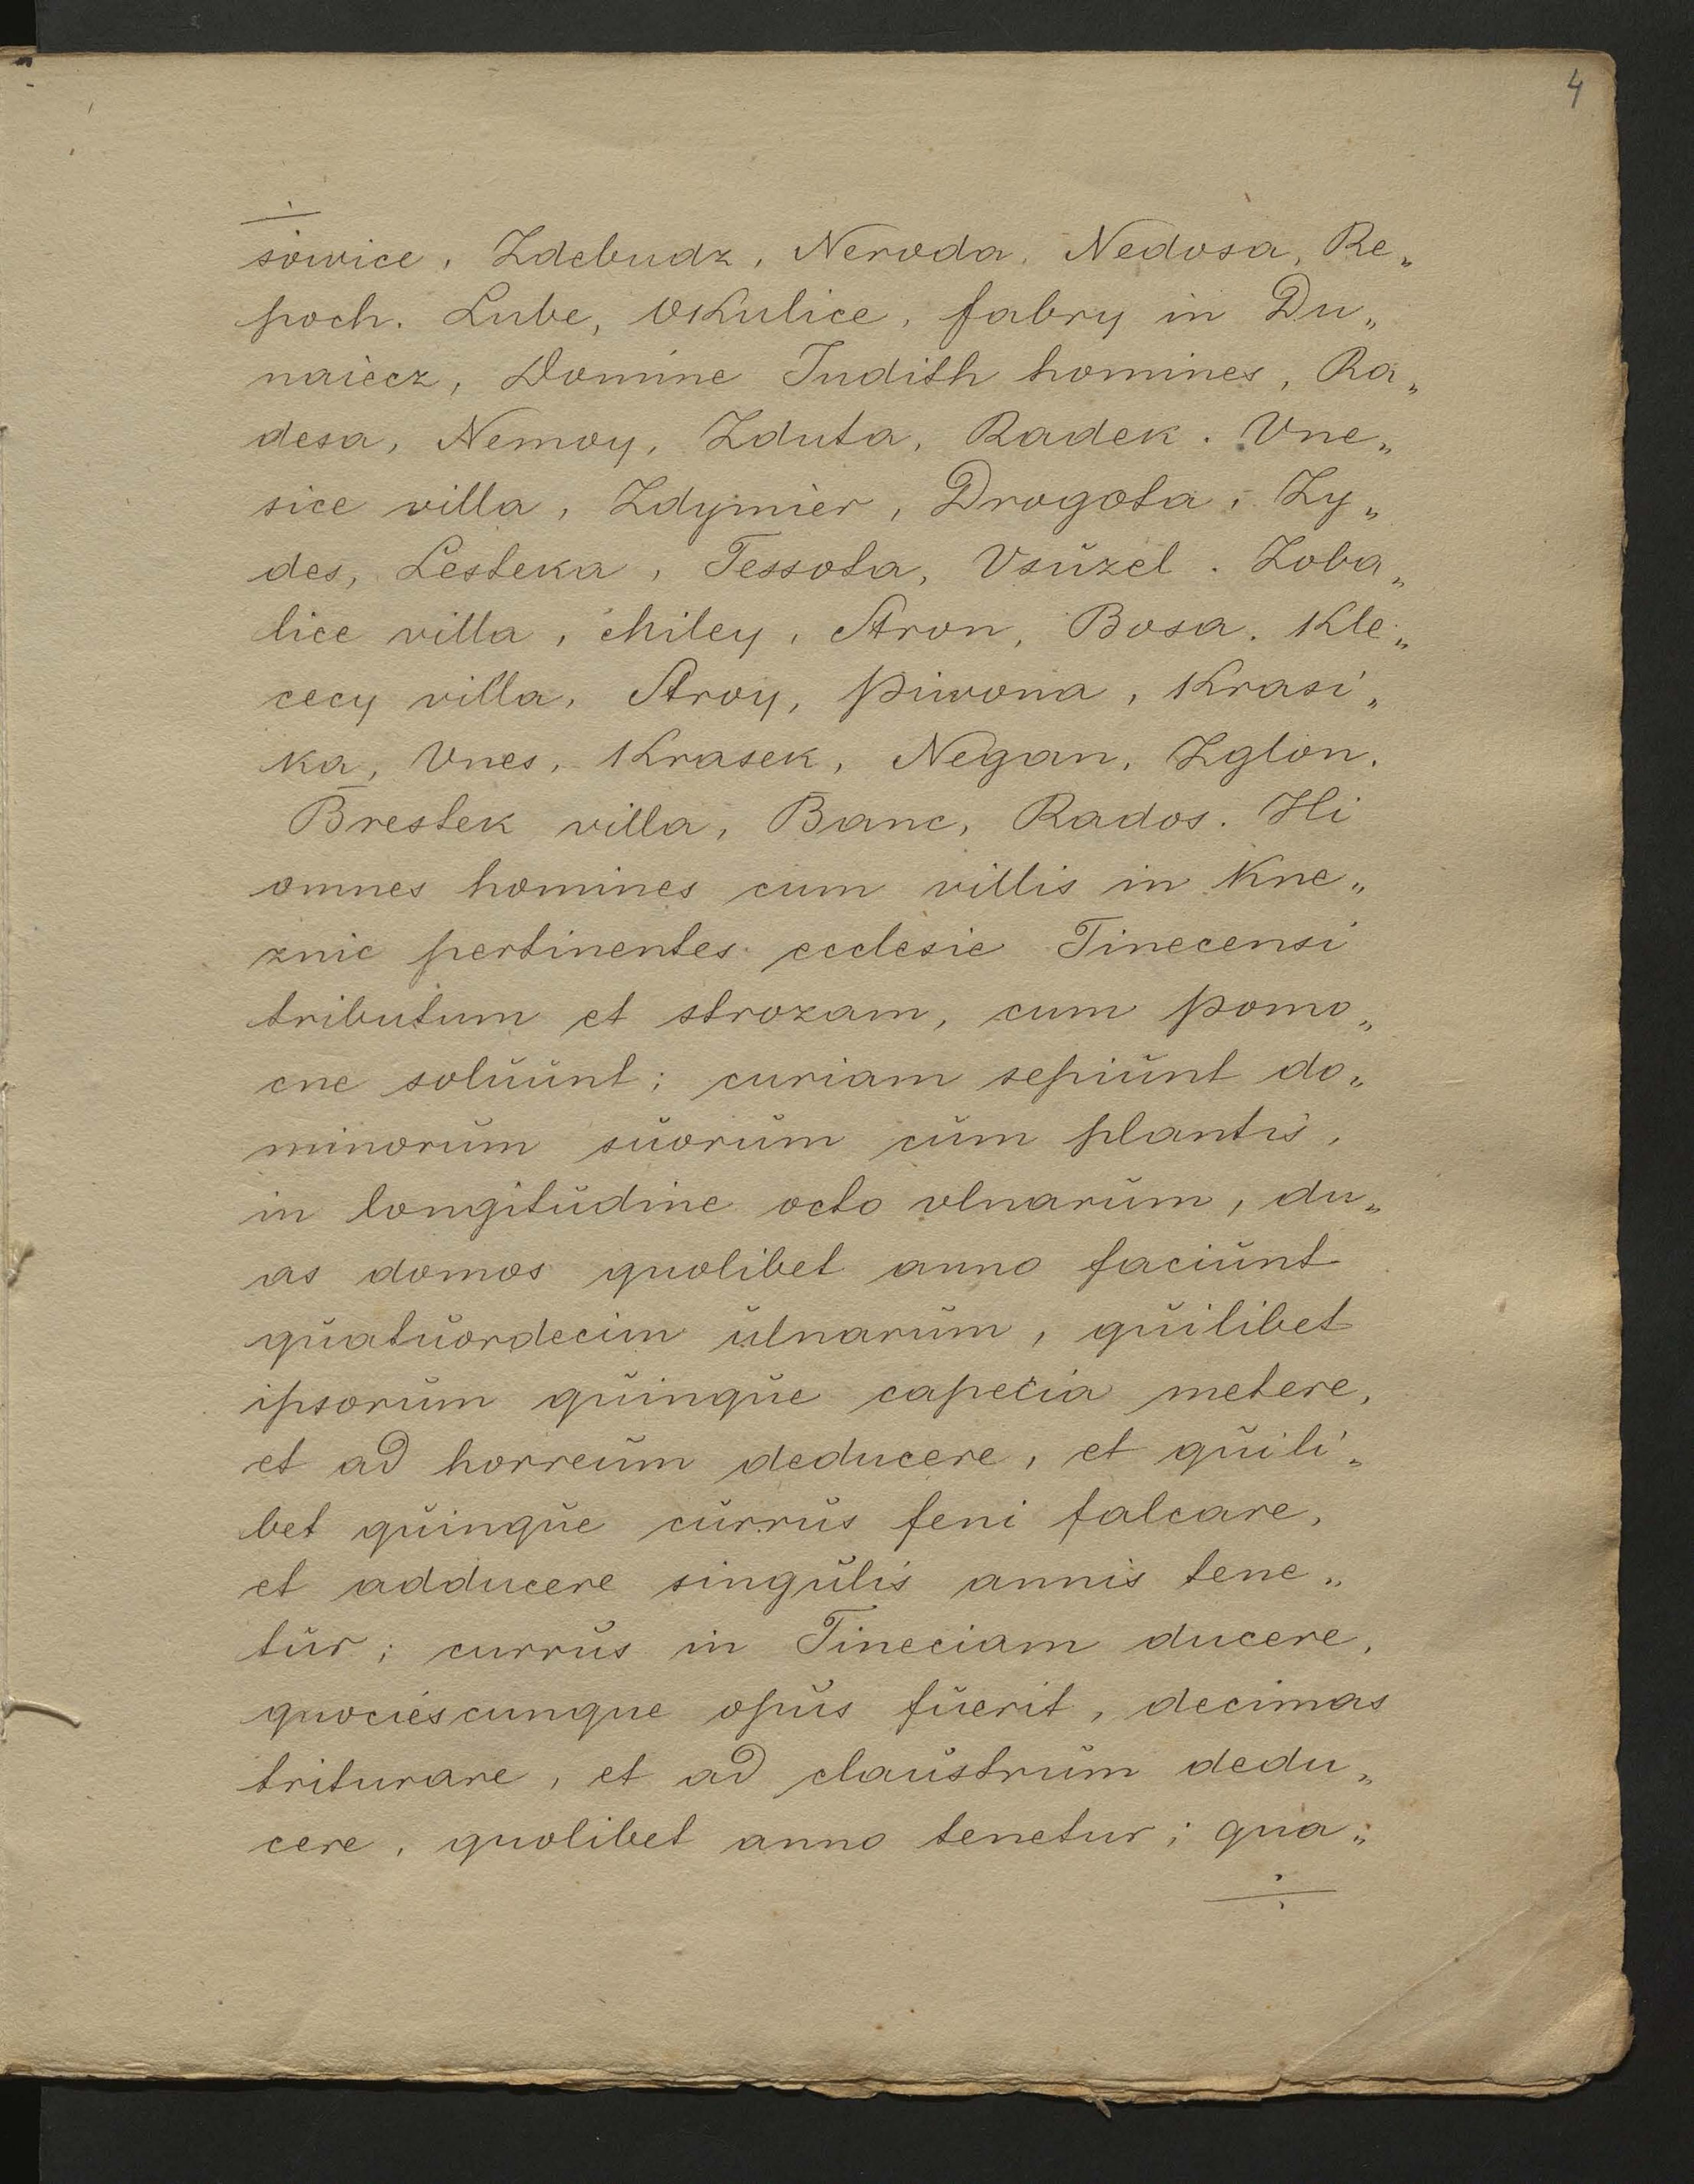 4
sowice, Zdebudz, Neroda, Nedosa, Re„
poch. Lube, Okulice, fabry in Du„
naiecz, Domine Judith homines, Ra„
desa, Nemoy, Zduta, Radek. Vne„
sice villa, Zdymier, Drogota, Zy„
des, Lesteka, Tessota, Vsŭzel. Zoba„
lice villa, Miley, Stron, Bosa. Kle„
cecy villa, Stroy, Piwona, Krasi„
ka, Vnes, Krasek, Negan, Zglon.
Brestek villa, Banc, Rados. Hi
omnes homines cum villis in Kne„
znic pertinentes ecclesie Tinecensi
tributum et strozam, cum pomo„
cne solŭŭnt; curiam sepiŭnt do„
minorŭm sŭorŭm cŭm plantis,
in longitŭdine octo vlnarŭm, du„
as domos quolibet anno faciŭnt
qŭatŭordecim ŭlnarŭm, qŭilibet
ipsorŭm qŭinqŭe capecia metere,
et ad horreŭm deducere, et qŭili„
bet qŭinqŭe cŭrrŭs feni falcare,
et adducere singŭlis annis tene„
tŭr; currŭs in Tineciam ducere,
quociescunque opŭs fŭerit, decimas
triturare, et ad claŭstrŭm dedu„
cere, quolibet anno tenetur; qua„